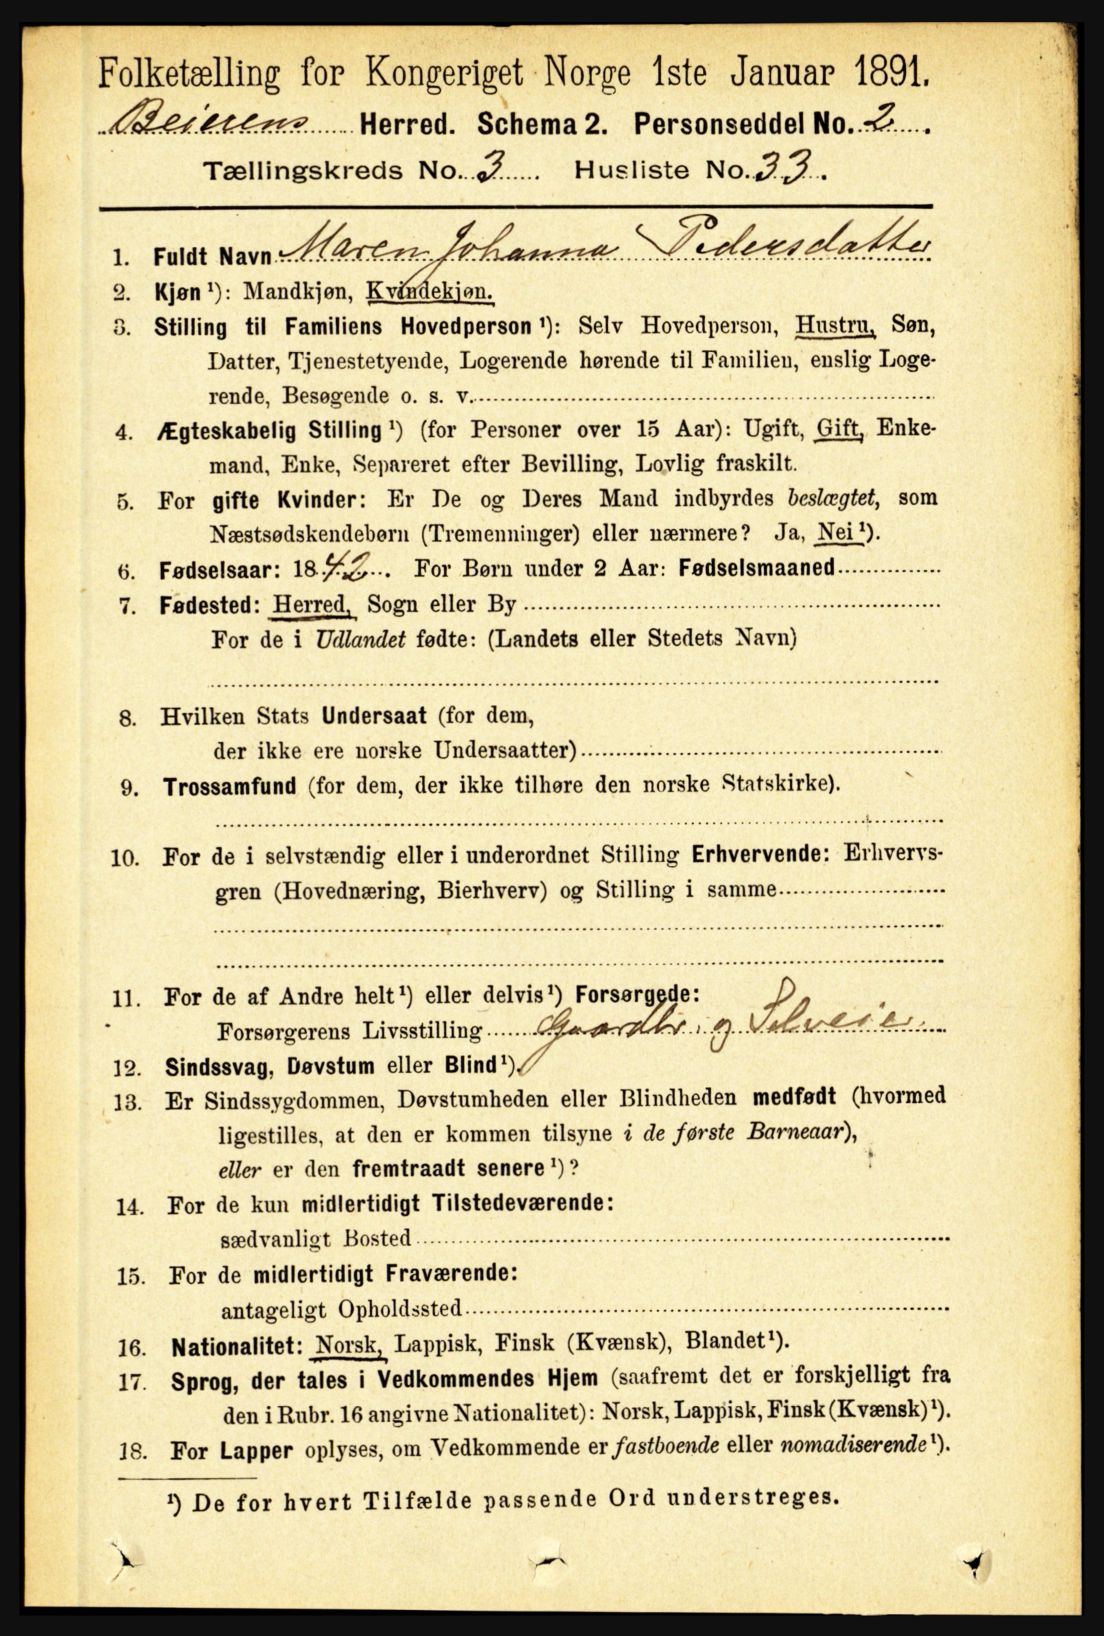 Folketælling for Kongeriget Norge 1ste Januar 1891.
Beierens Herred. Schema 2. Personseddel No. 2.
Tællingskreds No. 3 Husliste No. 33.
1. Fuldt Navn Maren Johanna Pedersdatter
2. Kjøn ¹): Mandkjøn, Kvindekjøn.
3. Stilling til Familiens Hovedperson ¹): Selv Hovedperson, Hustru, Søn,
Datter, Tjenestetyende, Logerende hørende til Familien, enslig Loge-
rende, Besøgende o. s. v.
4. Ægteskabelig Stilling ¹) (for Personer over 15 Aar): Ugift, Gift, Enke-
mand, Enke, Separeret efter Bevilling, Lovlig fraskilt.
5. For gifte Kvinder: Er De og Deres Mand indbyrdes beslægtet, som
Næstsødskendebørn (Tremenninger) eller nærmere? Ja, Nei ¹).
6. Fødselsaar: 1842. For Børn under 2 Aar: Fødselsmaaned
7. Fødested: Herred, Sogn eller By
For de i Udlandet fødte: (Landets eller Stedets Navn)
8. Hvilken Stats Undersaat (for dem,
der ikke ere norske Undersaatter)
9. Trossamfund (for dem, der ikke tilhøre den norske Statskirke).
10. For de i selvstændig eller i underordnet Stilling Erhvervende: Erhvervs-
gren (Hovednæring, Bierhverv) og Stilling i samme
11. For de af Andre helt ¹) eller delvis ¹) Forsørgede:
Forsørgerens Livsstilling Gaardbr. og Selveier.
12. Sindssvag, Døvstum eller Blind ¹).
13. Er Sindssygdommen, Døvstumheden eller Blindheden medfødt (hvormed
ligestilles, at den er kommen tilsyne i de første Barneaar),
eller er den fremtraadt senere ¹)?
14. For de kun midlertidigt Tilstedeværende:
sædvanligt Bosted
15. For de midlertidigt Fraværende:
antageligt Opholdssted
16. Nationalitet: Norsk, Lappisk, Finsk (Kvænsk), Blandet ¹).
17. Sprog, der tales i Vedkommendes Hjem (saafremt det er forskjelligt fra
den i Rubr. 16 angivne Nationalitet): Norsk, Lappisk, Finsk (Kvænsk) ¹).
18. For Lapper oplyses, om Vedkommende er fastboende eller nomadiserende ¹).
¹) De for hvert Tilfælde passende Ord understreges.